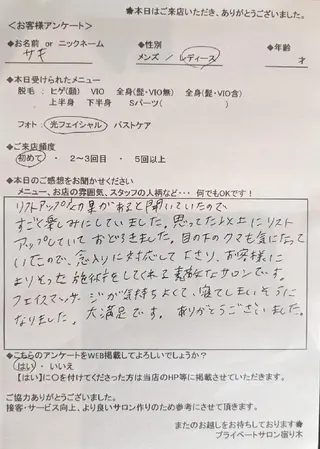 ★本日はご来店いただき、ありがとうございました。
<お客様アンケート>
◆お名前 or ニックネーム ◆性別 ◆年齢
サキ メンズ / レディース 才
◆本日受けられたメニュー
脱毛：ヒゲ(顔) VIO 全身(髭・VIO無) 全身(髭・VIO含)
上半身 下半身 Sパーツ( )
フォト：光フェイシャル バストケア
◆ご来店頻度
初めて ・ 2～3回目 ・ 5回以上
◆本日のご感想をお聞かせください
メニュー、お店の雰囲気、スタッフの人柄など･･･ 何でもOKです！
リフトアップ効果があると聞いていたので
すごく楽しみにしていました。思ってた以上にリフト
アップしていておどろきました。目の下のクマも気になって
いたので、念入りに対応して下さり、お客様に
よりそった施術をしてくれる素敵なサロンです。
フェイスマッサージが気持ちよくて、寝てしまいそうに
なりました。大満足です。ありがとうございました。
◆こちらのアンケートをWEB掲載してよろしいでしょうか？
はい ・ いいえ
【はい】に〇を付けてくださった方は当店のHP等に掲載させていただきます。
ご協力ありがとうございました。
接客・サービス向上、より良いサロン作りのため参考にさせて頂きます。
またのお越しをお待ちしております★
プライベートサロン宿り木